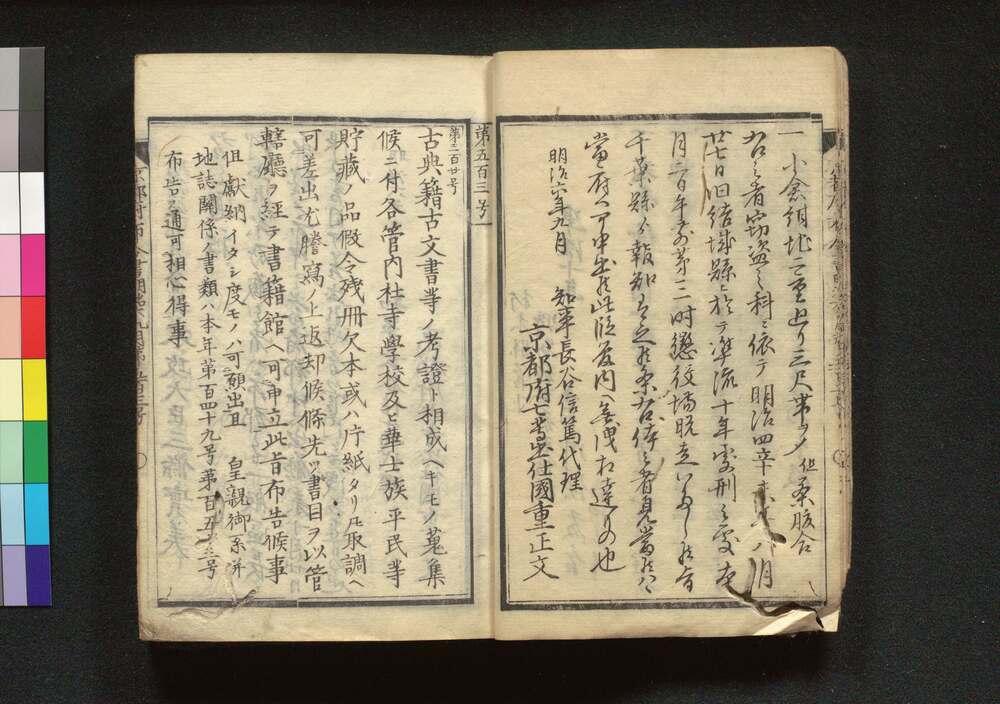 一 小倉組地二重上り三尺帯ヲ 但
右之者窃盗之科ニ依テ明治四辛未年八月
廿七日旧結城縣ニ於テ準流十年處刑之處本
月二日午前第三時懲役場脱走いたし候旨
千葉縣ゟ報知有之候条右体之者見當候ハヽ
當府ヘ可申出候此段管内ヘ無洩相達るもの也
明治六年九月 知事長谷信篤代理
京都府七等出仕國重正文
第五百三号
第三百廿号
古典籍古文書等ノ考證ト相成ヘキモノ蒐集
候ニ付各管内社寺學校及ヒ華士族平民等
貯藏ノ品假令残冊欠本或ハ片紙タリトモ取調ヘ
可差出尤謄寫ノ上返却候條先ツ書目ヲ以管
轄廳ヲ經テ書籍館ヘ可申立此旨布告候事
但獻納イタシ度モノハ可願出且 皇親御系併
地誌關係ノ書類ハ本年第百四十九号第百五十三号
布告之通可相心得事